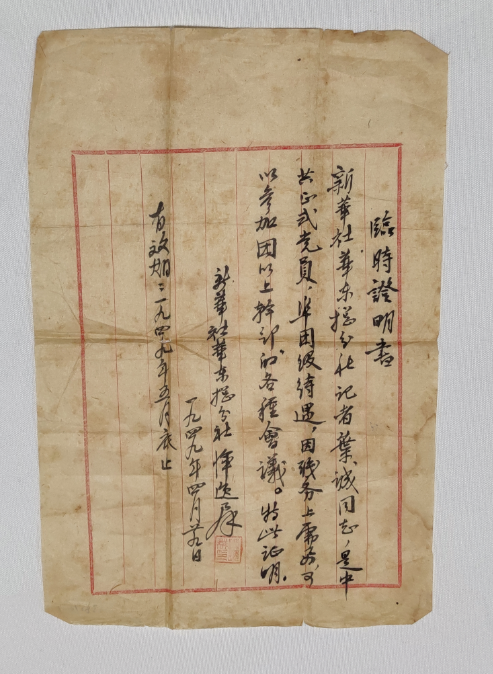 臨時證明書
新華社華东總分社记者葉诚同志,是中
共正式党員,享团级待遇,因职务上需要,可
以参加团以上幹部的各種會議。特此证明。
新華社華东總分社 恽逸群
一九四九年四月日
有效期:一九四九年五月底止